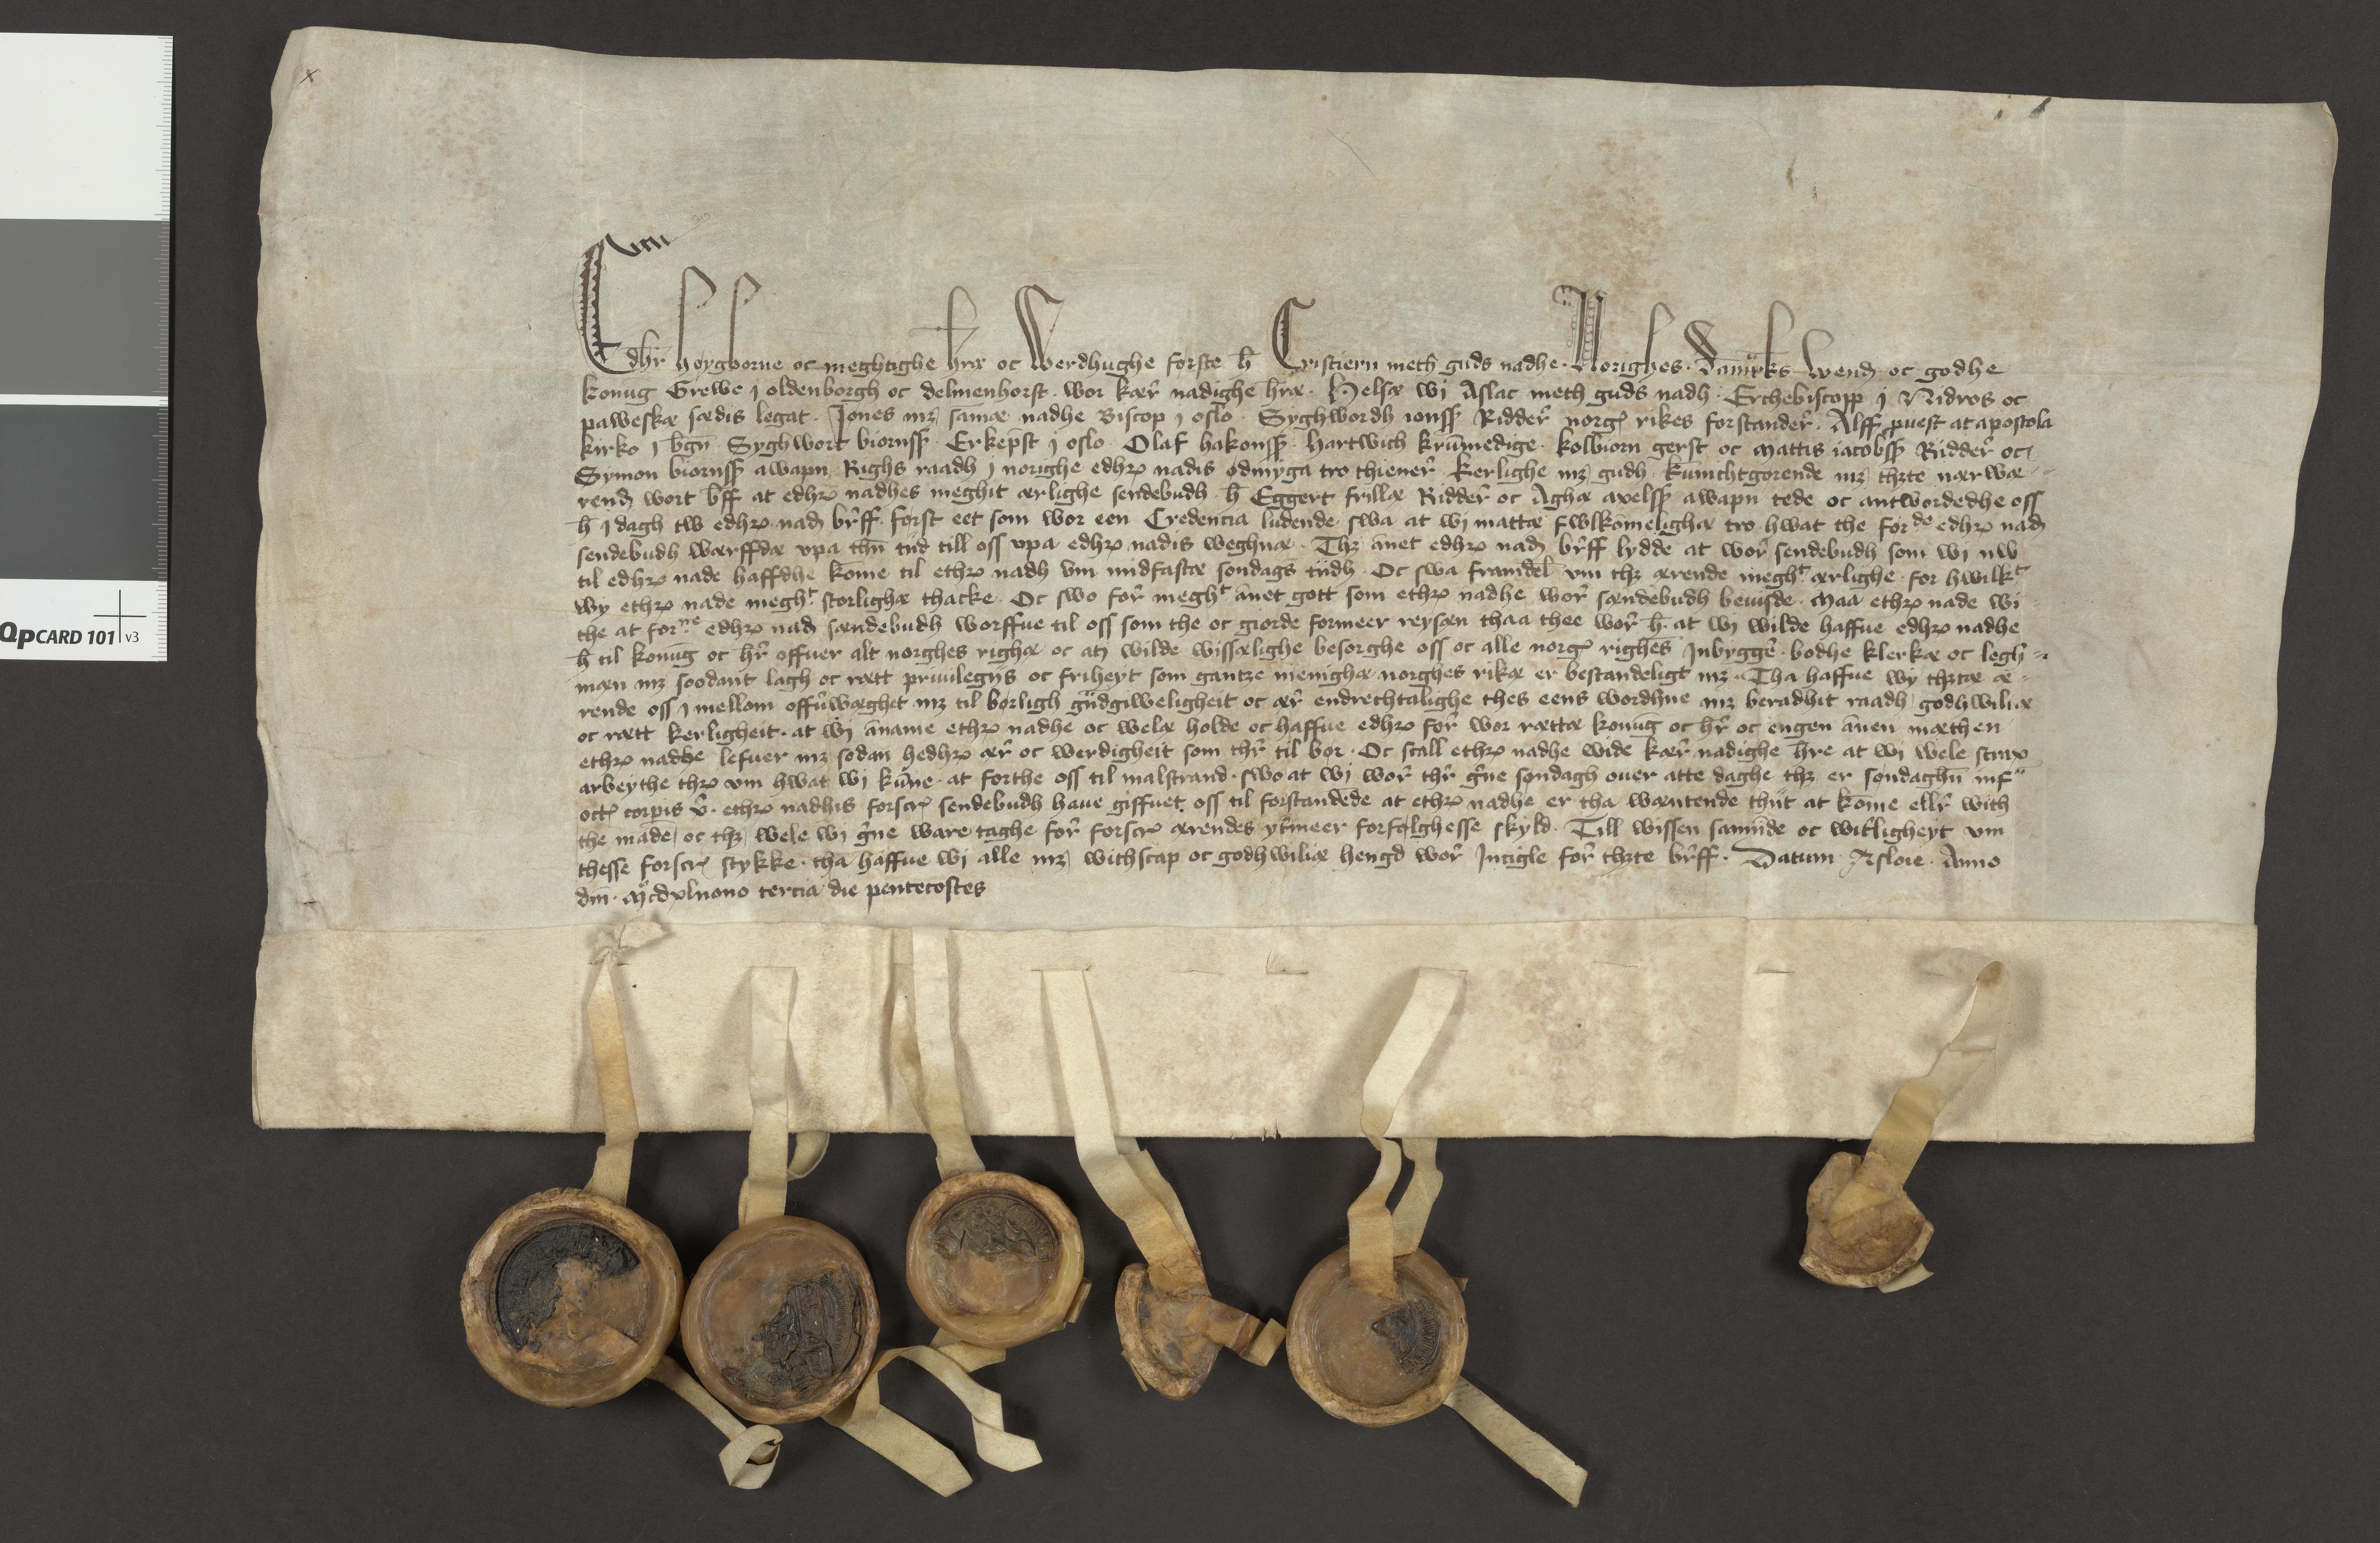 Edhr̄ hoygborne oc meghtighe hr̄æ oc werdhughe forste h̄ Cristiern meth guds nadhe · Norighes · Dāmͬks wend̄ oc godhe
konūg Grewe j oldenborgh oc delmenhorst · wor kær̄ nadighe hr̄æ · Helsæ wj Aslac meth guds nadh · Erchebiscopp j Nidros oc
paweskæ sædis legat · Jones mꝫ sāmæ nadhe Biscop j oslo · Syghwordh ionsß Ridder̄ norgꝭ rikes forstander̄ · Alff ꝓuest at apostola
kirko j b̄gn̄ · Syghwort biornsß · Erkep̄st j oslo · Olaf hakonsß · Hartwich krūmedige · kolbiorn gerst oc Mattis iacobsß Ridder̄ oc
Symon biornsß awapn · Righs raadh j norighe edhrꝭ nadis ødmyga tro thiener̄ kerlighe mꝫ gudh · kūnichtgorende mꝫ thꝫte nærwæ-
rend̄ wort b̄ff at edhrꝭ nadhes meghit ærlighe sendebudh · h̄ Eggert frillæ Ridder̄ oc Aghæ axelsß awapn tede oc antwordedhe oss
h̄ j dagh tw edhrꝭ nad̄ br̄ff · forst eet som wor een Credencia lūdende swa at wj mattæ fwlkōmelighæ tro hwat the forᵈᵉ edhrꝭ nad̄
sendebudh wærffdæ vpa thn̄ tiid till oss vpa edhrꝭ nadis weghnæ · Thꝫ ānet edhrꝭ nad̄ br̄ff lydde at wor̄ sendebudh som wj nw
til edhrꝭ nade haffdhe kōme til ethrꝭ nadh vm midfastæ søndags tiidh · Oc swa framdel̄ vm thꝫ ærende meghᵗ ærlighe · for hwilkᵗ
wy ethrꝭ nade meghᵗ storlighæ thacke · Oc swo for̄ meghᵗ ānet gott som ethrꝭ nadhe wor̄ sændebudh beuisde · Maa ethrꝭ nade wi-
the at forⁿᵉ edhrꝭ nad̄ sændebudh worffue til oss som the oc giorde formeer reysæn thaa thee wor̄ h̄ · at wj wilde haffue edhrꝭ nadhe
h̄ til konūg oc hr̄ offuer alt norghes righæ oc atj wilde wissælighe besorghe oss oc alle norgꝭ righēs Jnbyggē · bodhe klerkæ oc legh-
mæn mꝫ soodant lagh oc rætt priuilegijs oc friheyt som gantze menighæ norghes rikæ er bestandeligt mꝫ · Tha haffue wy thꝫtæ æ-
rende oss j mellom offūwæghet mꝫ til børligh gūdgiweligheit oc ær̄ endrechtalighe thes eens wordhne mꝫ beradhit raadh godhwiliæ
oc rætt kerligheit · at wj āname ethrꝭ nadhe oc welæ holde oc haffue edhrꝭ for̄ wor rættæ konūg oc hr̄ oc engen ānen mæthen
ethrꝭ nadhe lefuer mꝫ sodan hedhrꝭ ær̄ oc werdigheit som thr̄ til bør · Oc scall ethrꝭ nadhe wide kær̄ nadighe hr̄e at wj wele strax
arbeythe thrꝭ vm hwat wj kūne · at forthe oss til malstrand · swo at wj wor̄ thr̄ gͤne søndagh ouer atte daghe thꝫ er søndaghn̄ infᵃ
octꝭ corꝑis x̄ · ethrꝭ nadhis forscrꝭ sendebudh haue giffuet oss til forstandēde at ethrꝭ nadhe er tha wæntende thiit at kōme ellr̄ with
the māde oc thꝫ wele wj gͤne ware taghe for̄ forscrꝭ ærendes yt̄meer forfølghesse skyld · Till wissen sannīde oc wit̄ligheyt vm
thesse forscrꝭ stykke · tha haffue wj alle mꝫ withscap oc godhwiliæ hengd wor̄ Jncigle for̄ thꝫte br̄ff · Datum Asloie · Anno
dn̄i · Mͦcdxlnono tercia die pentecostes
QPCARD 101 v3